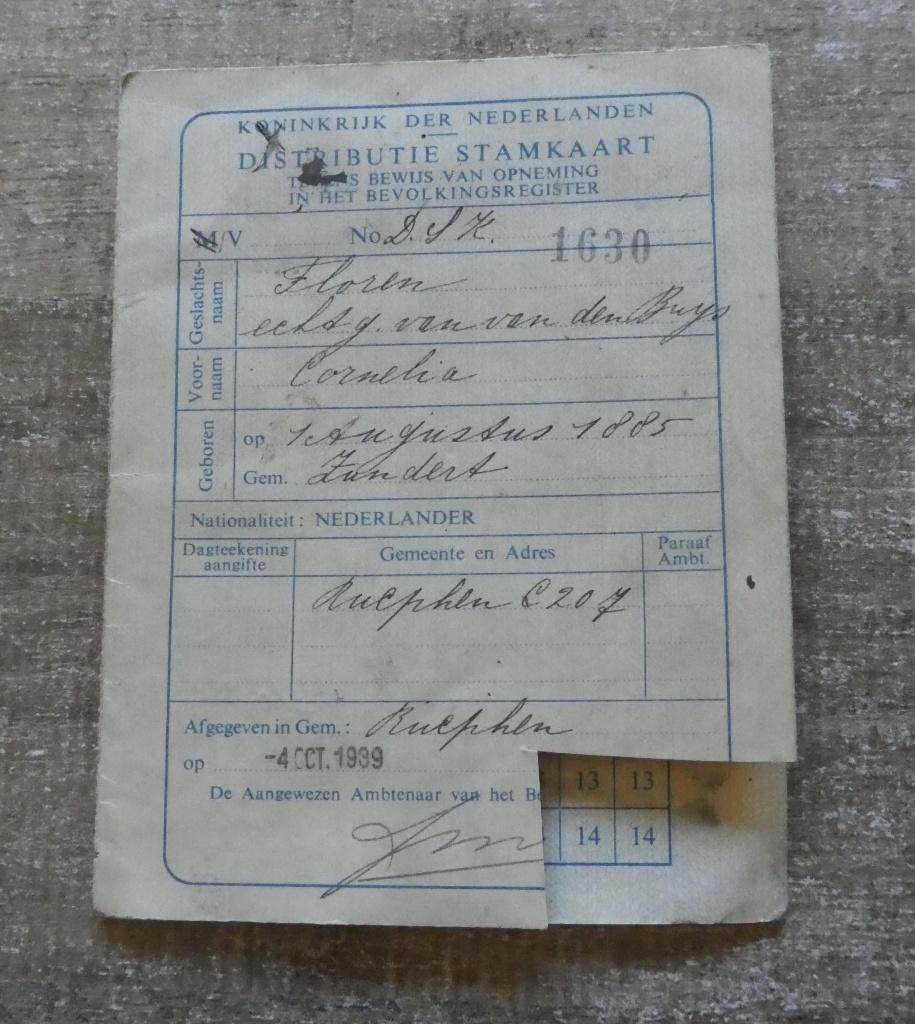 KONINKRIJK DER NEDERLANDEN
DISTRIBUTIE STAMKAART
TEVENS BEWIJS VAN OPNEMING
IN HET BEVOLKINGSREGISTER
M/V No D.S.K. 1630
Geslachts-
naam
Floren
echtg. van van den Buys
Voor-
naam
Cornelia
Geboren
op 1 Augustus 1885
Gem. Zundert
Nationaliteit: NEDERLANDER
Dagteekening
aangifte
Gemeente en Adres
Paraaf
Ambt.
Rucphen C 207
Afgegeven in Gem.: Rucphen
op -4 OCT. 1939
De Aangewezen Ambtenaar van het Be
13 13
14 14